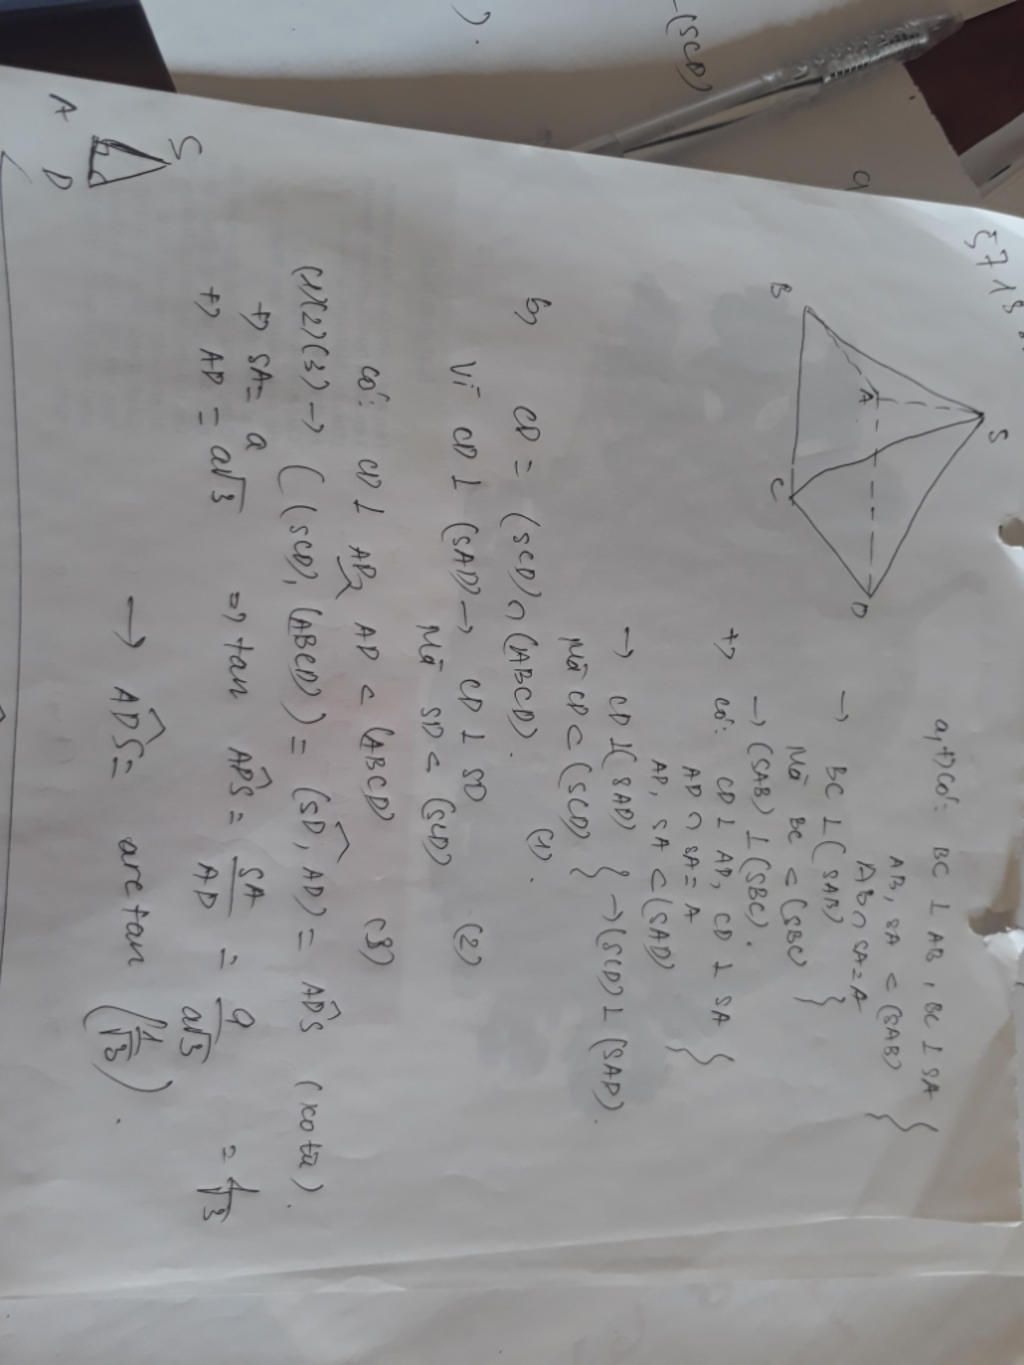 -(SCD)
).
9
5718
S
B
A
C
D
a, +) Có: BC ⊥ AB, BC ⊥ SA }
AB, SA ⊂ (SAB)
AB ∩ SA = A
→ BC ⊥ (SAB) }
Mà BC ⊂ (SBC)
→ (SAB) ⊥ (SBC).
+) Có: CD ⊥ AD, CD ⊥ SA }
AD ∩ SA = A
AD, SA ⊂ (SAD)
→ CD ⊥ (SAD) } → (SCD) ⊥ (SAD).
Mà CD ⊂ (SCD)
b, CD = (SCD) ∩ (ABCD). (1).
Vì CD ⊥ (SAD) → CD ⊥ SD (2)
Mà SD ⊂ (SCD)
Có: CD ⊥ AD, AD ⊂ (ABCD) (3)
(1)(2)(3) → ((SCD), (ABCD)) = (SD, AD) = ADS (to tù).
+) SA = a
+) AD = a√3 ⇒ tan ADS = SA/AD = a/a√3 = 1/√3
→ ADS = arctan (1/√3).
S
A
D